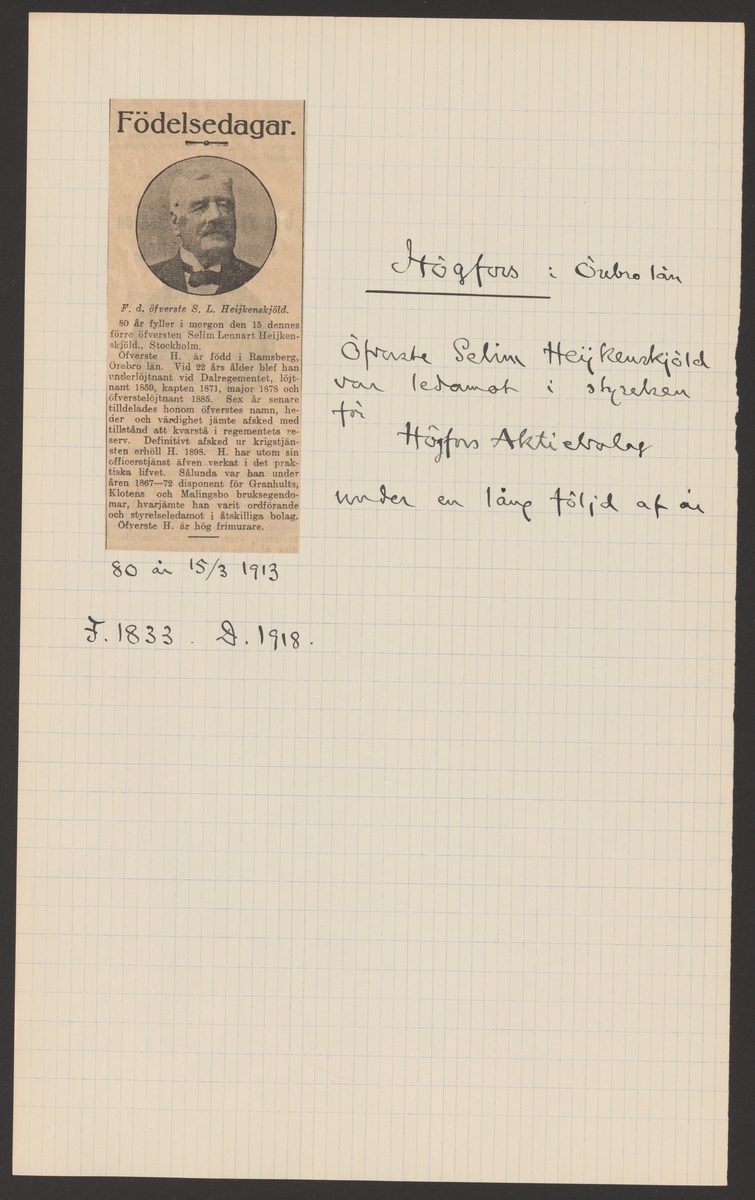 Födelsedagar.
F. d. öfverste S. L. Heijkenskjöld.
80 år fyller i morgon den 15 dennes
förre öfversten Selim Lennart Heijken-
skjöld., Stockholm.
Öfverste H. är född i Ramsberg,
Örebro län. Vid 22 års ålder blef han
underlöjtnant vid Dalregementet, löjt-
nant 1859, kapten 1871, major 1878 och
öfverstelöjtnant 1885. Sex år senare
tilldelades honom öfverstes namn, he-
der och värdighet jämte afsked med
tillstånd att kvarstå i regementets re-
serv. Definitivt afsked ur krigstjän-
sten erhöll H. 1898. H. har utom sin
officerstjänst äfven verkat i det prak-
tiska lifvet. Sålunda var han under
åren 1867—72 disponent för Granhults,
Klotens och Malingsbo bruksegendo-
mar, hvarjämte han varit ordförande
och styrelseledamot i åtskilliga bolag.
Öfverste H. är hög frimurare.
80 år 15/3 1913
F. 1833. D. 1918.
Högfors i Örebro län
Öfverste Selim Heijkenskjöld
var ledamot i styrelsen
för
Högfors Aktiebolag
under en lång följd af år